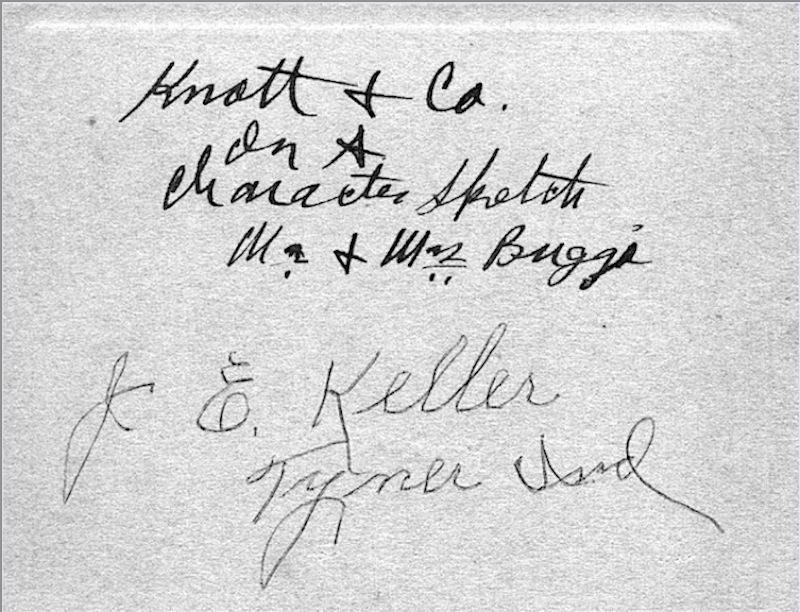 Knott & Co.
In A
Character Sketch
Mr & Mrs Buggs
J. E. Keller
Tyner Ind